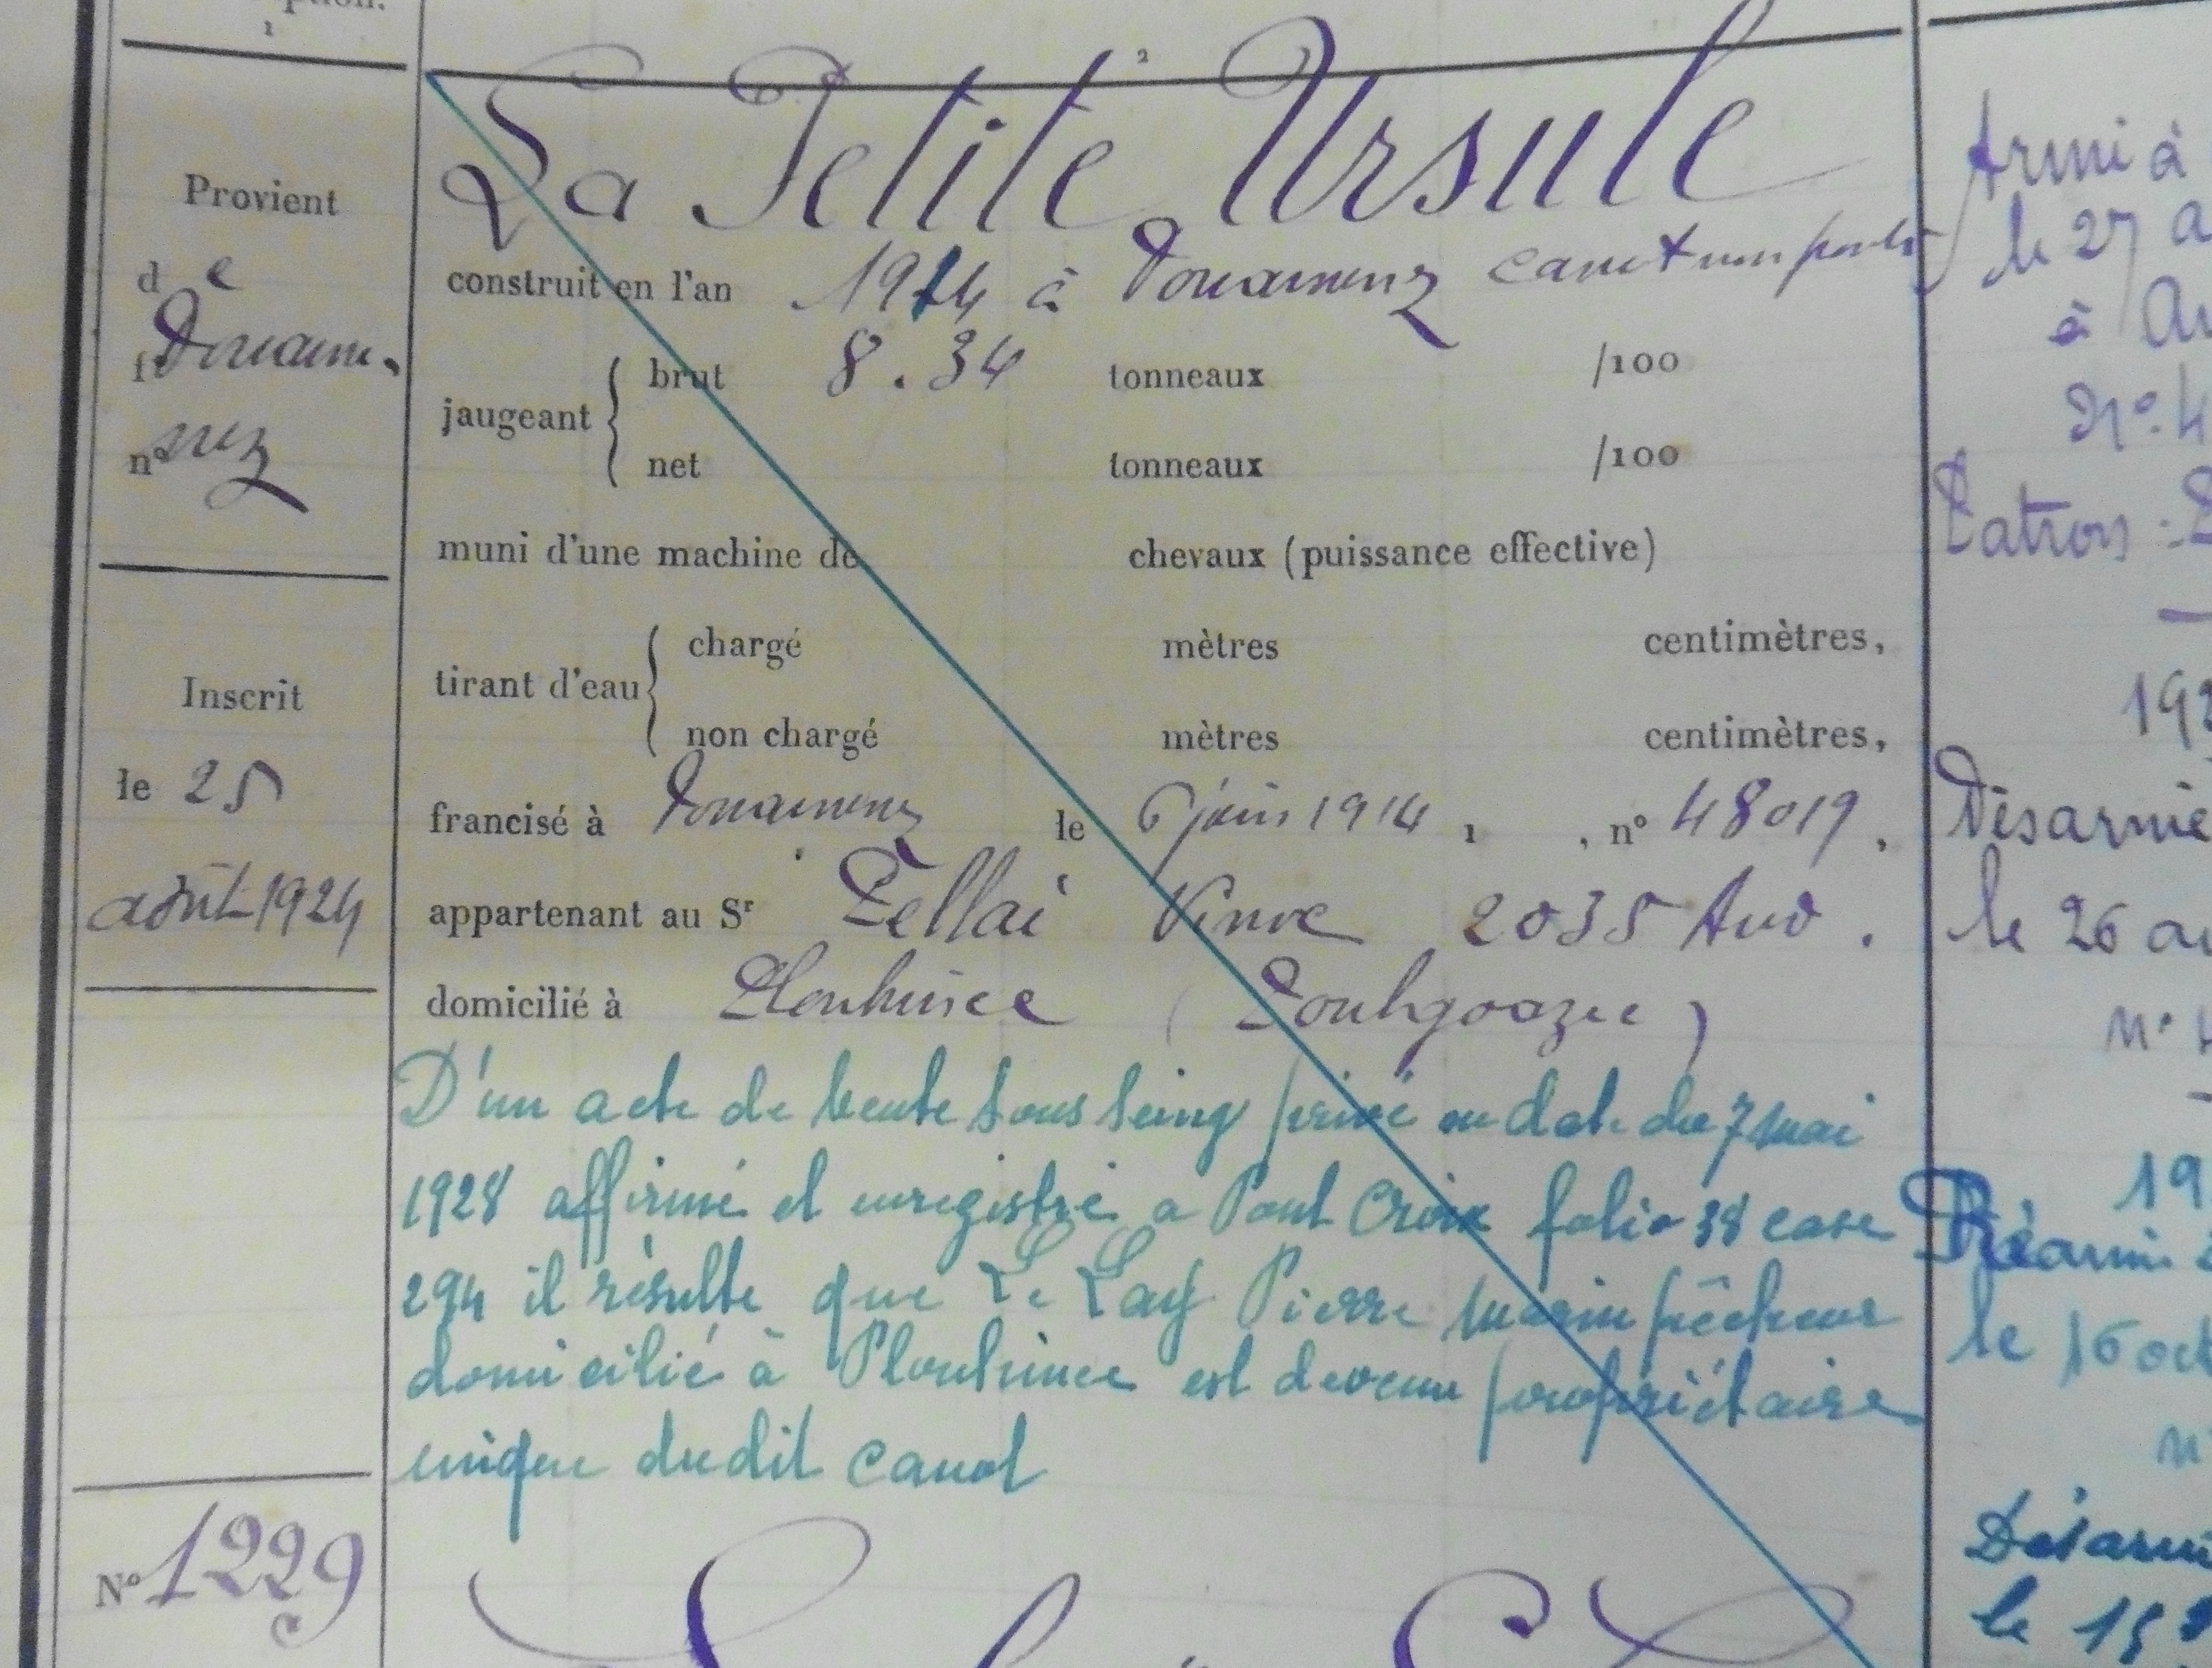 ption.
1
2
La Petite Ursule
Provient
de
Douarne.
f
n° nez
construit en l'an 1914 à Douarnenez canot non ponté
jaugeant { brut 8.34 tonneaux /100
net tonneaux /100
muni d'une machine de chevaux (puissance effective)
tirant d'eau { chargé mètres centimètres,
non chargé mètres centimètres,
Inscrit
le 25
août 1924
francisé à Douarnenez le 6 juin 1914 1 , n° 48019.
appartenant au Sr Pellaé 2035 Aud.
domicilié à Plouhinec (Poulgoazec)
D'un acte de vente sous seing privé en date du 7 mai
1928 affirmé et enregistré a Pont Croix folio 38 case
294 il résulte que Le Lay Pierre marin pêcheur
domicilié à Plouhinec est devenu propriétaire
unique dudit canot
N° 1229
Armé à
le 27 a
à Au
N° 4
Patron :
192
Désarmé
le 26 ao
n°
19
Réarmé
le 16 oct
n°
Désarmé
le 15